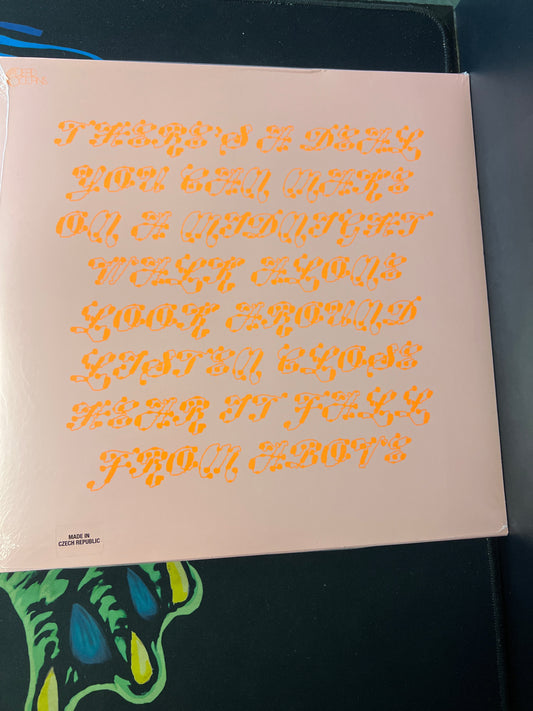 SUPER
OCEANS
THERE'S A DEAL
YOU CAN MAKE
ON A MIDNIGHT
WALK ALONE
LOOK AROUND
LISTEN CLOSE
HEAR IT FALL
FROM ABOVE
MADE IN
CZECH REPUBLIC